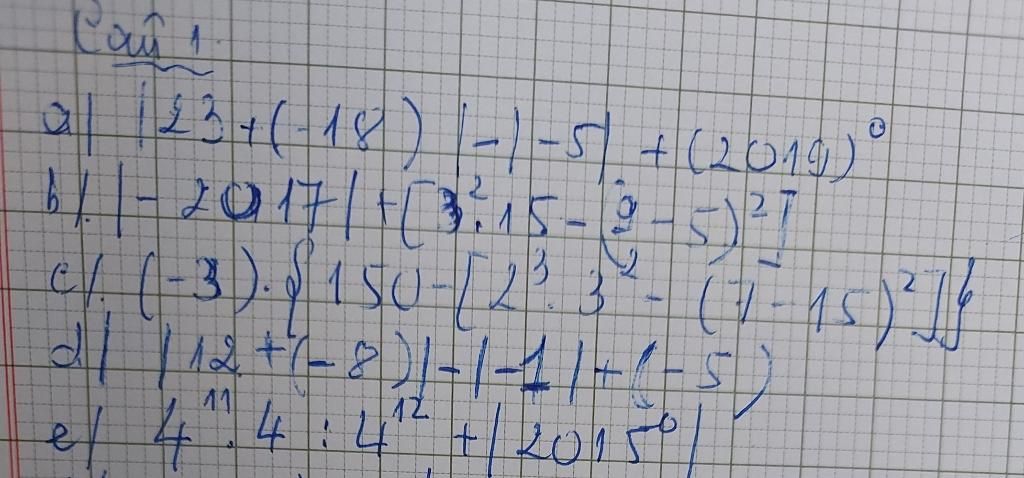 Câu 1.
a) |23 + (-18)| - |-5| + (2019)⁰
b). |-2017| + [3².15 - (9 - 5)²]
c). (-3).{150 - [2³.3² - (7 - 15)²]}
d) |12 + (-8)| - |-1| + (-5)
e) 4¹¹.4 : 4¹² + |2015⁰|